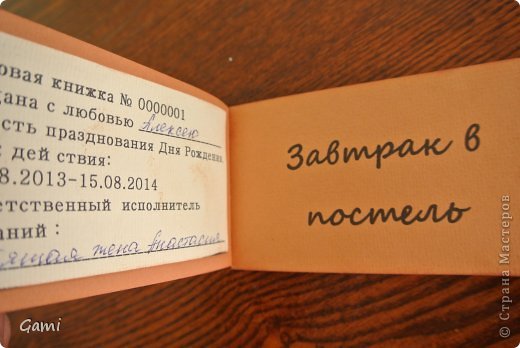 овая книжка № 0000001
дана с любовью Алексею
ость празднования Дня Рождения
дей ствия:
8.2013-15.08.2014
етственный исполнитель
аний :
ящая жена Анастасия
Завтрак в
постель
Gami
© Страна Мастеров